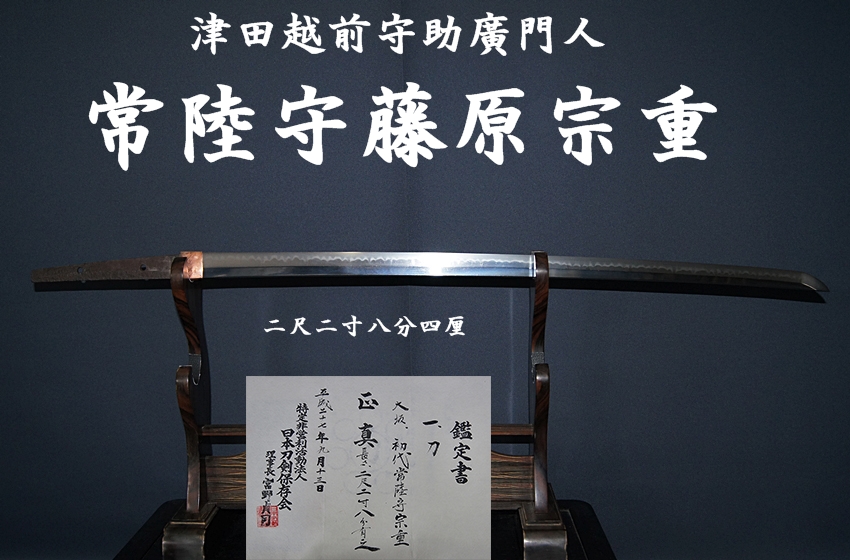 津田越前守助廣門人
常陸守藤原宗重
二尺二寸八分四厘
鑑定書
一、刀
大坂、初代常陸守宗重
正真 長さ二尺二寸八分有之
平成二十七年九月十三日
特定非営利活動法人
日本刀剣保存会
理事長 宮野